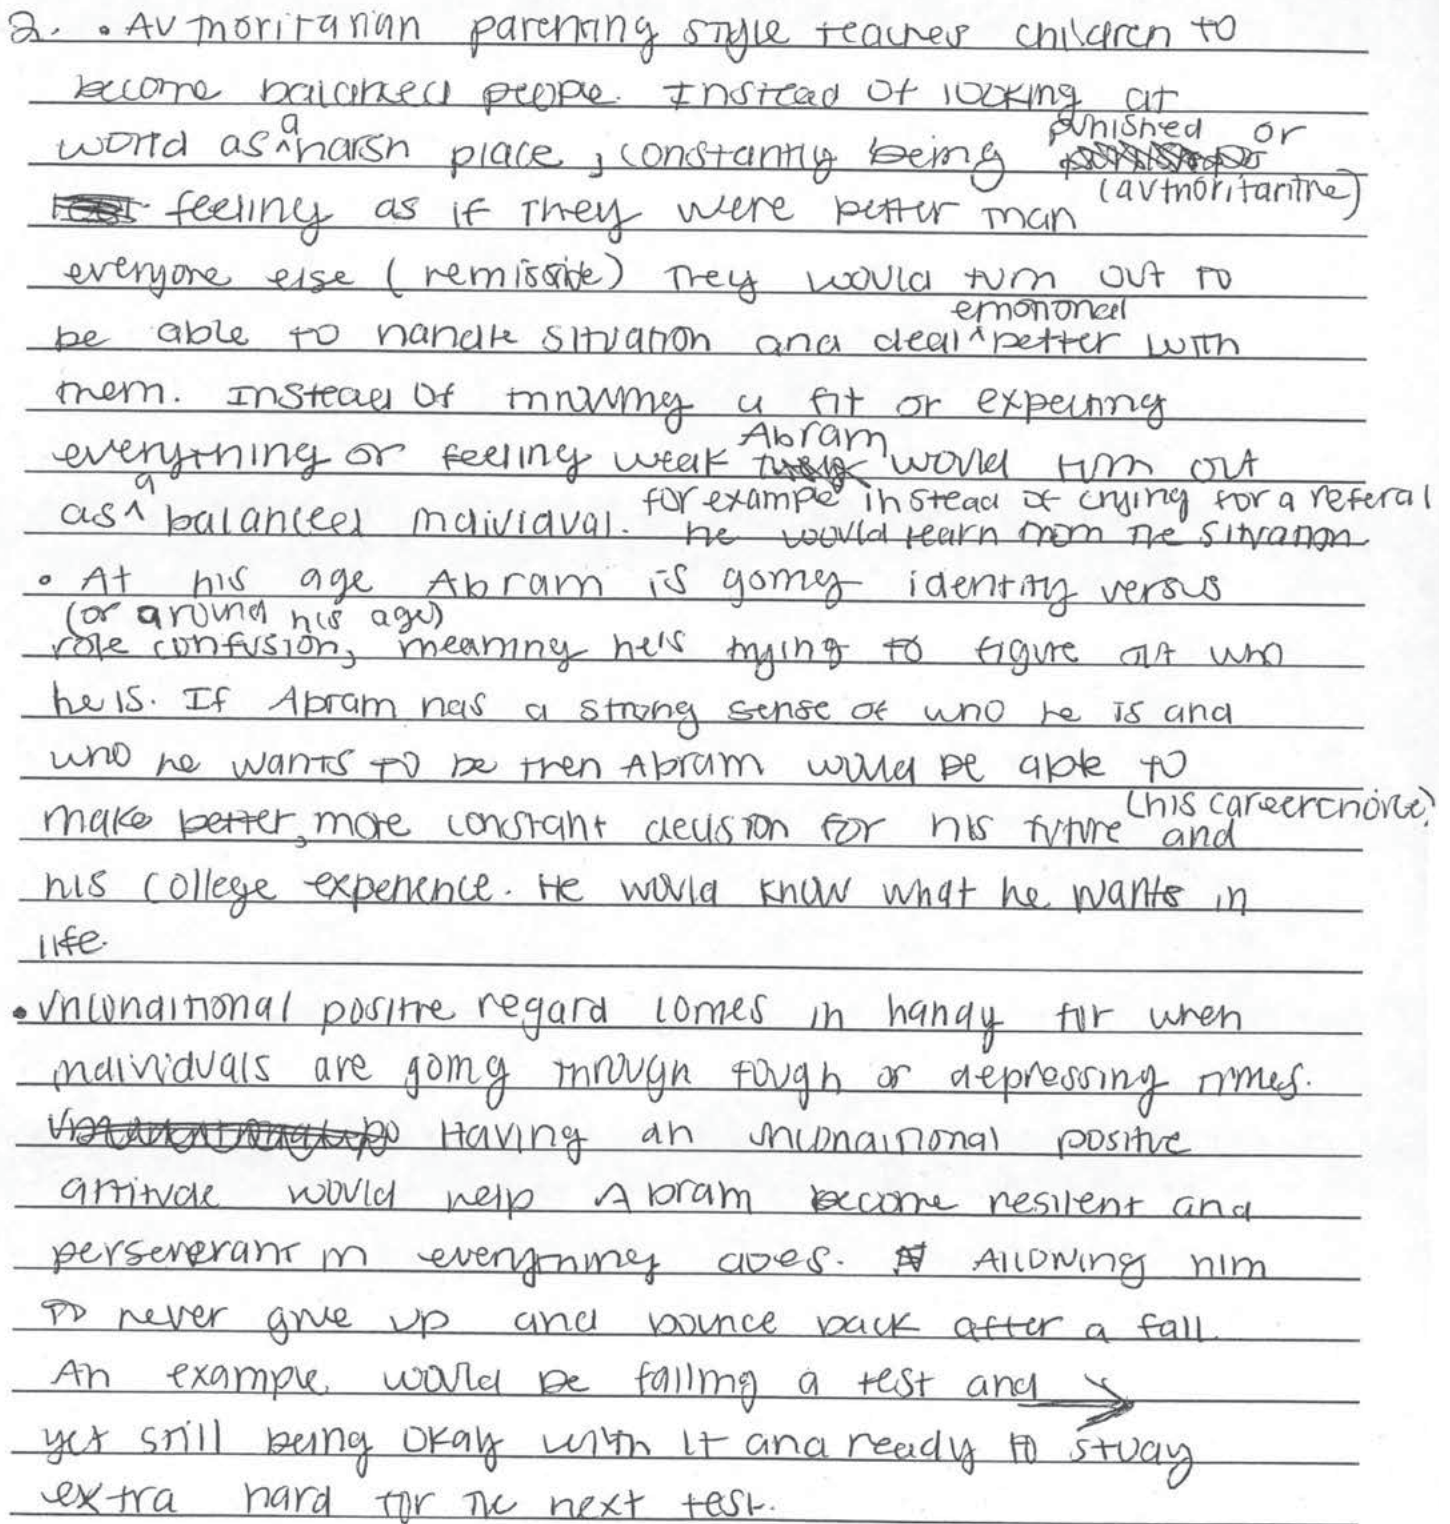 2. • Authoritarian parenting style teaches children to
become balanced people. Instead of looking at
world as a harsh place, constantly being punished or
feeling as if they were better than (authoritaritne)
everyone else (remissive) They would turn out to
be able to handle situation and deal emotional better with
them. Instead of throwing a fit or expecting
everything or feeling weak Abram would turn out
as a balanced individual. for example instead of crying for a referal
he would learn from the situation
• At his age Abram is going identity versus
(or around his age)
role confusion, meaning he's trying to figure out who
he is. If Abram has a strong sense of who he is and
who he wants to be then Abram would be able to
make better, more constant decision for his future (his career choice) and
his college experience. He would know what he wants in
life.
• Unconditional positive regard comes in handy for when
individuals are going through tough or depressing times.
Having an unconditional positive
attitude would help Abram become resilent and
perseverant in everything does. Allowing him
to never give up and bounce back after a fall.
An example would be failing a test and →
yet still being okay with it and ready to study
extra hard for the next test.